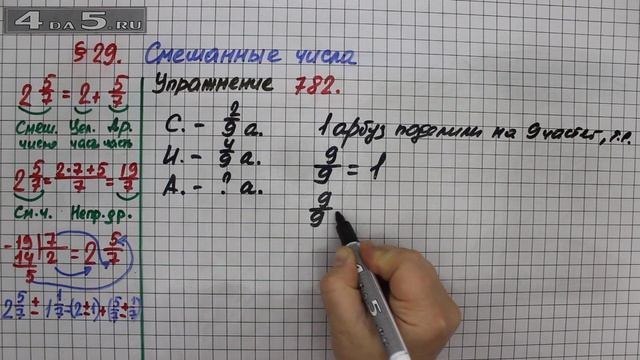 4 DA 5.RU
§ 29. Смешанные числа
2 5/7 = 2 + 5/7
Смеш. число Цел. часть Др. часть
2 5/7 = 2·7+5/7 = 19/7
См.ч. Непр.др.
-19 | 7 = 2 5/7
14 2
5
2 5/7 ± 1 1/7 = (2±1)+(5/7±1/7)
Упражнение 782.
С. - 2/9 а.
И. - 4/9 а.
А. - ? а.
1 арбуз поделили на 9 частей, т.е.
9/9 = 1
9/9